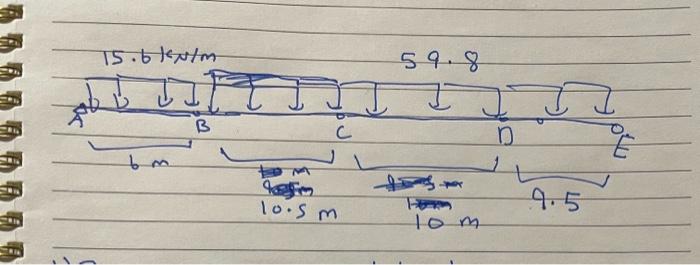 15.6 kN/m 59.8
A B C D E
6 m 10.5 m 10 m 9.5